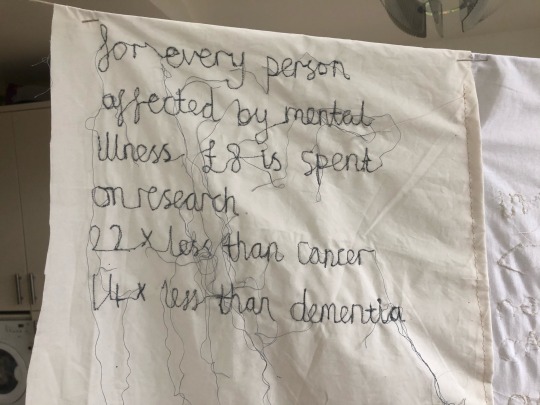 for every person
affected by mental
illness £8 is spent
on research
22x less than cancer
14x less than dementia